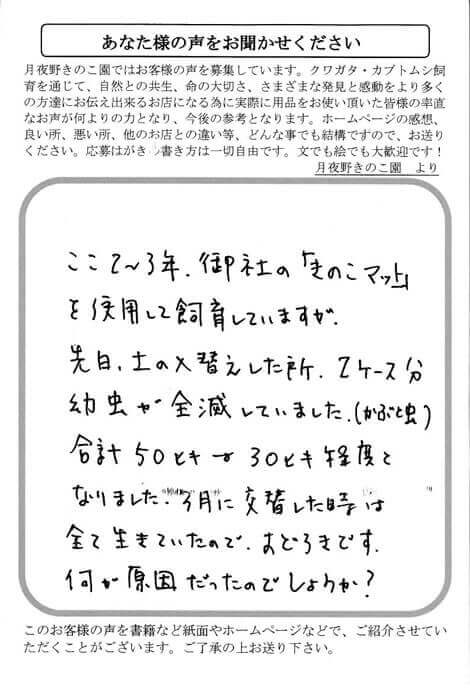 あなた様の声をお聞かせください
月夜野きのこ園ではお客様の声を募集しています。クワガタ・カブトムシ飼
育を通じて、自然との共生、命の大切さ、さまざまな発見と感動をより多く
の方達にお伝え出来るお店になる為に実際に用品をお使い頂いた皆様の率直
なお声が何よりの力となり、今後の参考となります。ホームページの感想、
良い所、悪い所、他のお店との違い等、どんな事でも結構ですので、お送り
ください。応募はがき 書き方は一切自由です。文でも絵でも大歓迎です！
月夜野きのこ園　より
ここ2〜3年、御社の「きのこマット」
を使用して飼育していますが、
先日、土の入替えした所、2ケース分
幼虫が全滅していました。(かぶと虫)
合計50ヒキ→30ヒキ程度と
なりました。3月に交替した時は
全て生きていたので、おどろきです。
何が原因だったのでしょうか？
このお客様の声を書籍など紙面やホームページなどで、ご紹介させてい
ただくことがございます。ご了承の上お送り下さい。